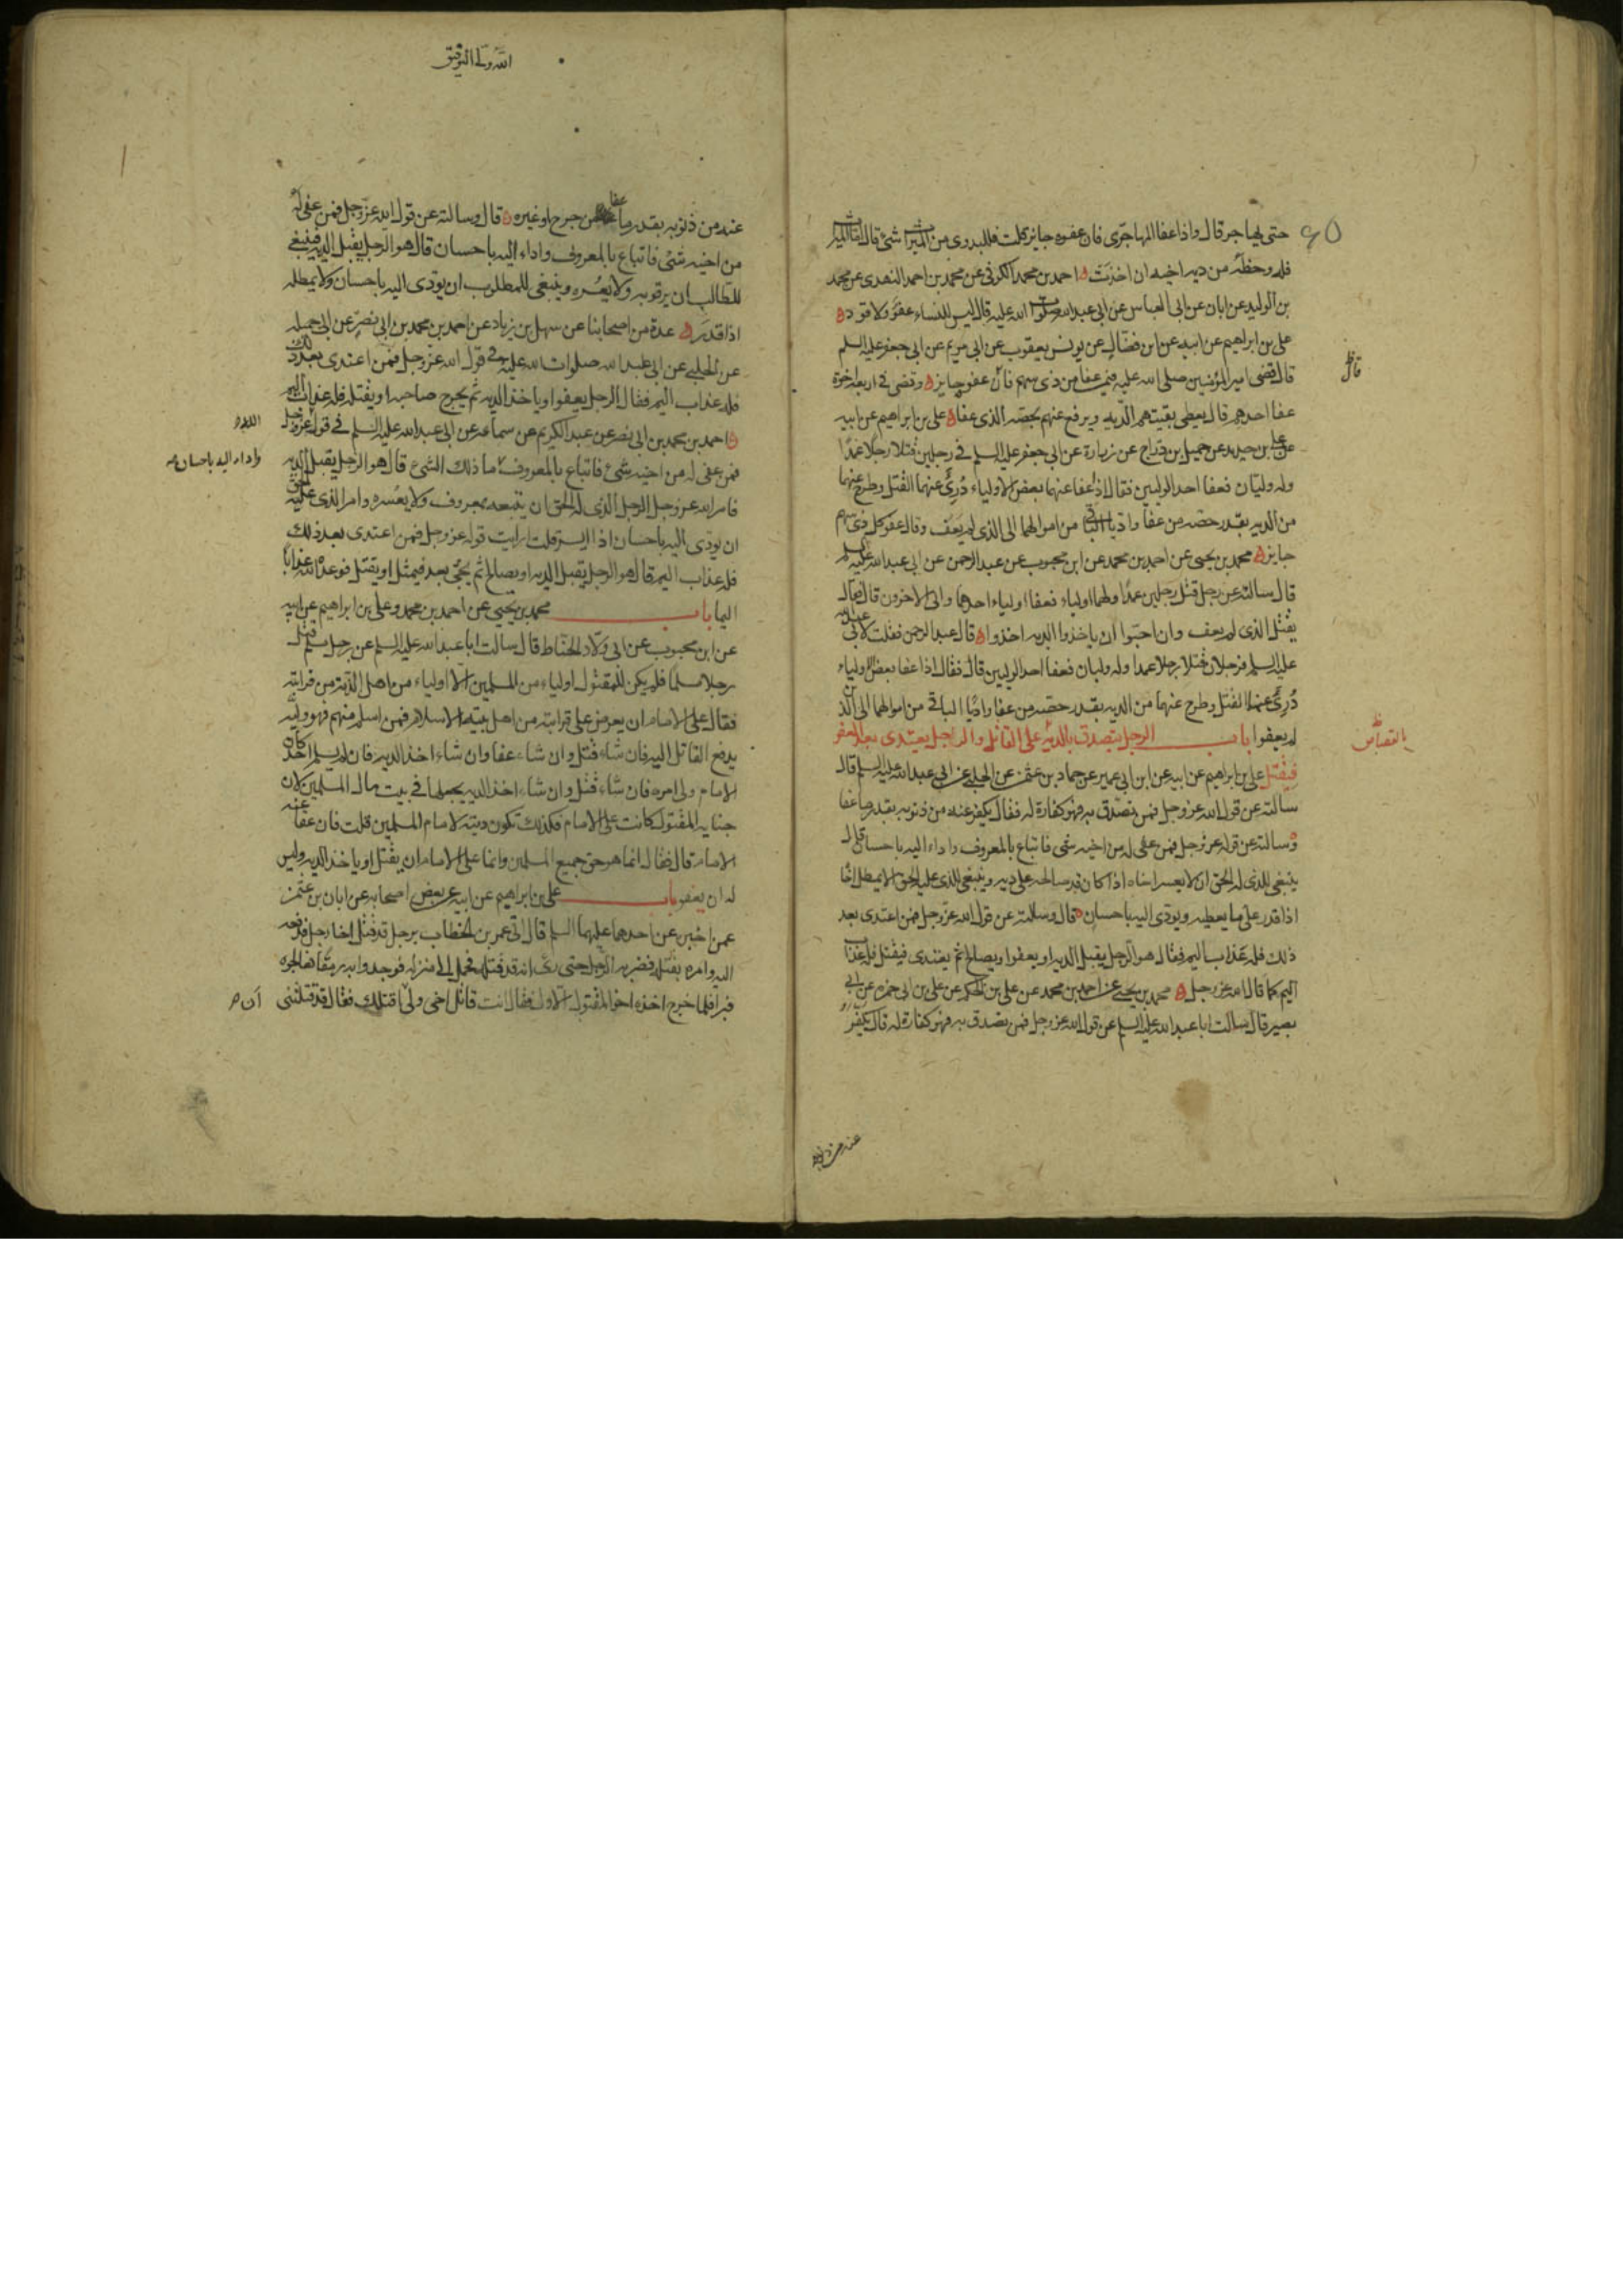 حتى يهاجر قال واذا عفا المهاجرى فان عفوه جايز قلت فللبدوى من الميراث شئ قال اما الميراث
فله وحظه من دية اخيه ان اخذت احمد بن محمد الكوفى عن محمد بن احمد النهدى عن محمد
بن الوليد عن ابان عن ابى العباس عن ابى عبد الله صلوات الله عليه قال ليس للنساء عفو ولا قود
على بن ابراهيم عن ابيه عن ابن فضال عن يونس بن يعقوب عن ابى مريم عن ابى جعفر عليه السلم
قال قضى امير المؤمنين صلى الله عليه فيمن عفا من ذى سهم فان عفوه جايز وقضى فى اربعة اخوة
عفا احدهم قال يعطى بقيتهم الدية ويرفع عنهم بحصة الذى عفا على بن ابراهيم عن ابيه
عن على بن حديد عن جميل بن دراج عن زرارة عن ابى جعفر عليه السلم فى رجلين قتلا رجلا عمدا
وله وليان فعفا احد الوليين فقال اذا عفا عنهما بعض الاولياء درئ عنهما القتل وطرح عنهما
من الدية بقدر حصة من عفا واديا الباقى من اموالهما الى الذى لم يعف وقال عفو كل ذى سهم
جايز محمد بن يحيى عن احمد بن محمد عن ابن محبوب عن عبد الرحمن عن ابى عبد الله عليه السلم
قال سالته عن رجل قتل رجلين عمدا ولهما اولياء فعفا اولياء احدهما وابى الاخرون قال فقال
يقتل الذى لم يعف وان احبوا ان ياخذوا الدية اخذوا قال عبد الرحمن فقلت لابى عبد الله
عليه السلم فرجلان قتلا رجلا عمدا وله وليان فعفا احد الوليين قال فقال اذا عفا بعض الاولياء
درئ عنهما القتل وطرح عنهما من الدية بقدر حصة من عفا واديا الباقى من اموالهما الى الذين
لم يعفوا باب الرجل يتصدق بالدية على القاتل والرجل يعتدى بعد العفو
فيقتل على بن ابراهيم عن ابيه عن ابن ابى عمير عن حماد بن عثمن عن الحلبى عن ابى عبد الله عليه السلم قال
سالته عن قول الله عز وجل فمن تصدق به فهو كفارة له فقال يكفر عنه من ذنوبه بقدر ما عفا
وسالته عن قوله عز وجل فمن عفى له من اخيه شئ فاتباع بالمعروف واداء اليه باحسان قال
ينبغى للذى له الحق ان لا يعسر اخاه اذا كان قد صالحه على دية وينبغى للذى عليه الحق الا يمطل اخاه
اذا قدر على ما يعطيه ويودى اليه باحسان قال وسالته عن قول الله عز وجل فمن اعتدى بعد
ذلك فله عذاب اليم فقال هو الرجل يقبل الدية او يعفوا ويصالح ثم يعتدى فيقتل فله عذاب
اليم كما قال الله عز وجل محمد بن يحيى عن احمد بن محمد عن على بن الحكم عن على بن ابى حمزه عن ابى
بصير قال سالت ابا عبد الله عليه السلم عن قول الله عز وجل فمن تصدق به فهو كفارة له قال يكفر
القصاص
عنه من ذنوبه
الله ولى التوفيق
عنه من ذنوبه بقدر ما عفا من جرح او غيره قال وسالته عن قول الله عز وجل فمن عفى له
من اخيه شئ فاتباع بالمعروف واداء اليه باحسان قال هو الرجل يقبل الدية فينبغى
للطالب ان يرفق به ولا يعسره وينبغى للمطلوب ان يودى اليه باحسان ولا يمطله
اذا قدر عدة من اصحابنا عن سهل بن زياد عن احمد بن محمد بن ابى نصر عن ابى جميله
عن الحلبى عن ابى عبد الله صلوات الله عليه فى قول الله عز وجل فمن اعتدى بعد ذلك
فله عذاب اليم فقال الرجل يعفوا وياخذ الدية ثم يجرح صاحبه او يقتله فله عذاب اليم
احمد بن محمد بن ابى نصر عن عبد الكريم عن سماعة عن ابى عبد الله عليه السلم فى قول الله عز وجل
فمن عفى له من اخيه شئ فاتباع بالمعروف ما ذلك الشئ قال هو الرجل يقبل الدية
فامر الله عز وجل الرجل الذى له الحق ان يتبعه بمعروف ولا يعسره وامر الذى عليه الحق
ان يودى اليه باحسان اذا ايسر قلت ارايت قوله عز وجل فمن اعتدى بعد ذلك
فله عذاب اليم قال هو الرجل يقبل الدية او يصالح ثم يجئ بعد فيمثل او يقتل فوعده الله عذابا
اليما باب محمد بن يحيى عن احمد بن محمد وعلى بن ابراهيم عن ابيه
عن ابن محبوب عن ابى ولاد الحناط قال سالت ابا عبد الله عليه السلم عن رجل مسلم قتل
رجلا مسلما فلم يكن للمقتول اولياء من المسلمين الا اولياء من اهل الذمة من قرابته
فقال على الامام ان يعرض على قرابته من اهل بيته الاسلام فمن اسلم منهم فهو وليه
يدفع القاتل اليه فان شاء قتل وان شاء عفا وان شاء اخذ الدية فان لم يسلم احد كان
الامام ولى امره فان شاء قتل وان شاء اخذ الدية يجعلها فى بيت مال المسلمين لان
جناية المقتول كانت على الامام فكذلك تكون ديته لامام المسلمين قلت فان عفا عنه
الامام قال فقال انما هو حق جميع المسلمين وانما على الامام ان يقتل او ياخذ الدية وليس
له ان يعفو باب على بن ابراهيم عن ابيه عن بعض اصحابه عن ابان بن عثمن
عمن اخبره عن احدهما عليهما السلم قال اتى عمر بن الخطاب برجل قد قتل اخا رجل فدفعه
اليه وامره بقتله فضربه الرجل حتى راى انه قد قتله فحمل الى منزله فوجدوا به رمقا فعالجوه
فبرا فلما خرج اخذه اخو المقتول الاول فقال انت قاتل اخى ولى ان اقتلك فقال قد قتلتنى
واداء اليه باحسان